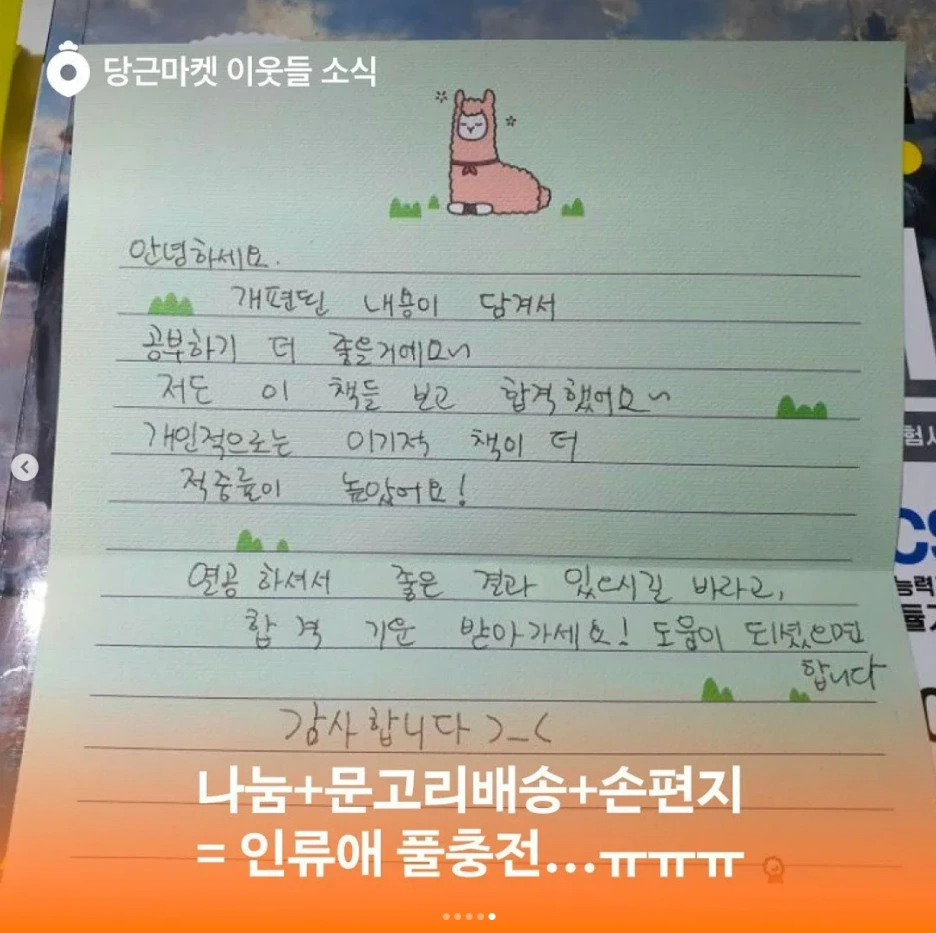 당근마켓 이웃들 소식
안녕하세요.
개편된 내용이 담겨서
공부하기 더 좋을거에요~
저도 이 책들 보고 합격했어요~
개인적으로는 이기적 책이 더
적중률이 높았어요!
열공하셔서 좋은 결과 있으시길 바라고,
합격 기운 받아가세요! 도움이 되셨으면
합니다
감사합니다 >_<
나눔+문고리배송+손편지
= 인류애 풀충전...ㅠㅠㅠ
험사
CS
능력